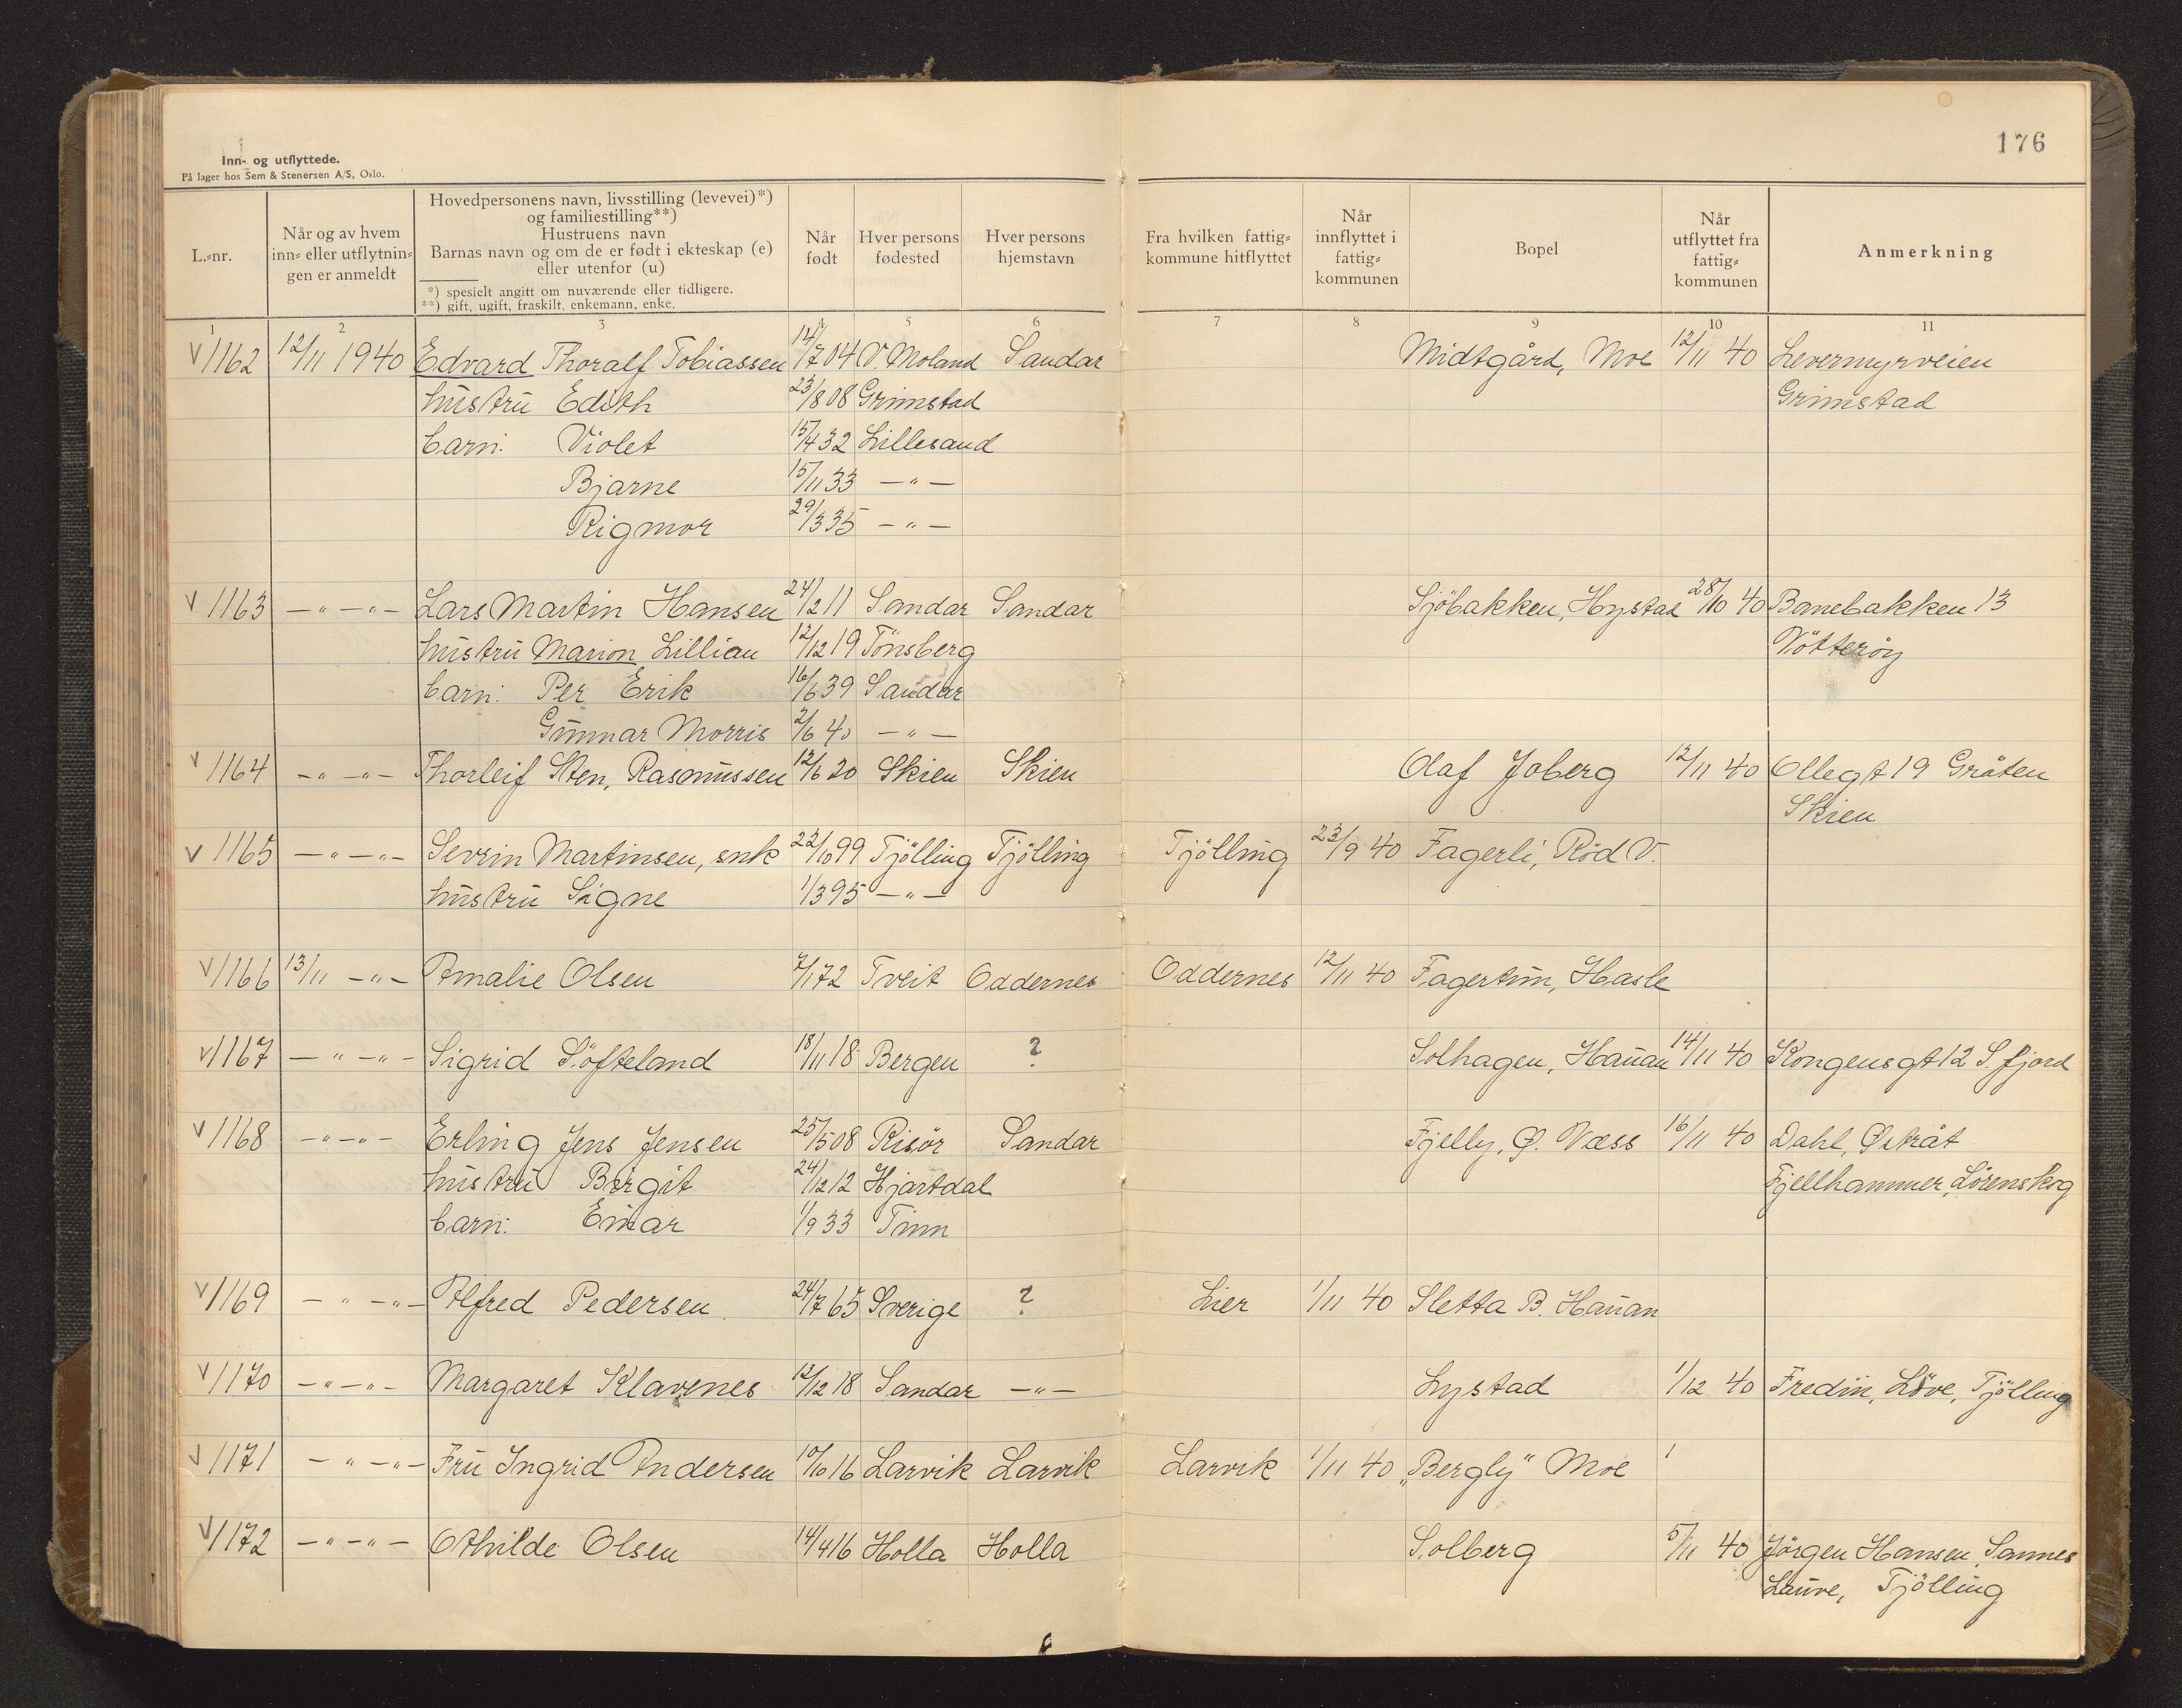 176
Inn- og utflyttede.
På lager hos Sem & Stenersen A/S, Oslo.
L.-nr.
Når og av hvem inn- eller utflytnin-gen er anmeldt
Hovedpersonens navn, livsstilling (levevei)*) og familiestilling**)
Hustruens navn
Barnas navn og om de er født i ekteskap (e) eller utenfor (u)
*) spesielt angitt om nuværende eller tidligere.
**) gift, ugift, fraskilt, enkemann, enke.
Når født
Hver persons fødested
Hver persons hjemstavn
Fra hvilken fattig-kommune hitflyttet
Når innflyttet i fattig-kommunen
Bopel
Når utflyttet fra fattig-kommunen
Anmerkning
1 2 3 4 5 6 7 8 9 10 11
V 1162 12/11 1940 Edvard Thoralf Tobiassen 14/7 04 V. Moland Sandar Midtgård, Moe 12/11 40 Levermyrveien
hustru Edith 23/8 08 Grimstad Grimstad
barn: Violet 15/4 32 Lillesand
Bjarne 15/11 33 — " —
Rigmor 29/3 35 — " —
V 1163 — " — " — Lars Martin Hansen 24/12 11 Sandar Sandar Sjöbakken, Hystad 28/10 40 Banebakken 13
hustru Marion Lillian 12/12 19 Tönsberg Nötteröy
barn: Per Erik 16/6 39 Sandar
Gunnar Morris 2/6 40 — " —
V 1164 — " — " — Thorleif Sten, Rasmussen 12/6 20 Skien Skien Olaf Joberg 12/11 40 Ollegt 19 Gråten
Skien
V 1165 — " — " — Sevrin Martinsen, snk 22/10 99 Tjölling Tjölling Tjölling 23/9 40 Fagerli, Röd V.
hustru Signe 1/3 95 — " —
V 1166 13/11 — " — Amalie Olsen 7/1 72 Tveit Oddernes Oddernes 12/11 40 Fagertun, Hasle
V 1167 — " — " — Sigrid Söfteland 18/11 18 Bergen ? Solhagen, Hauan 14/11 40 Kongensgt 12 S.fjord
V 1168 — " — " — Erling Jens Jensen 25/5 08 Risör Sandar Fjelly, Ø. Væss 16/11 40 Dahl, Østråt
hustru Birgit 24/12 12 Hjartdal Fjellhammer, Lörenskog
barn: Einar 1/9 33 Tinn
V 1169 — " — " — Alfred Pedersen 24/7 65 Sverige ? Lier 1/11 40 Sletta B. Hauan
V 1170 — " — " — Margaret Klavenes 12/12 18 Sandar — " — Lystad 1/12 40 Fredin, Löve, Tjölling
V 1171 — " — " — Fru Ingrid Andersen 10/10 16 Larvik Larvik Larvik 1/11 40 „Bergly" Moe
V 1172 — " — " — Othilde Olsen 14/4 16 Holla Holla Solberg 5/11 40 Jörgen Hansen Sannes
Lauve, Tjölling